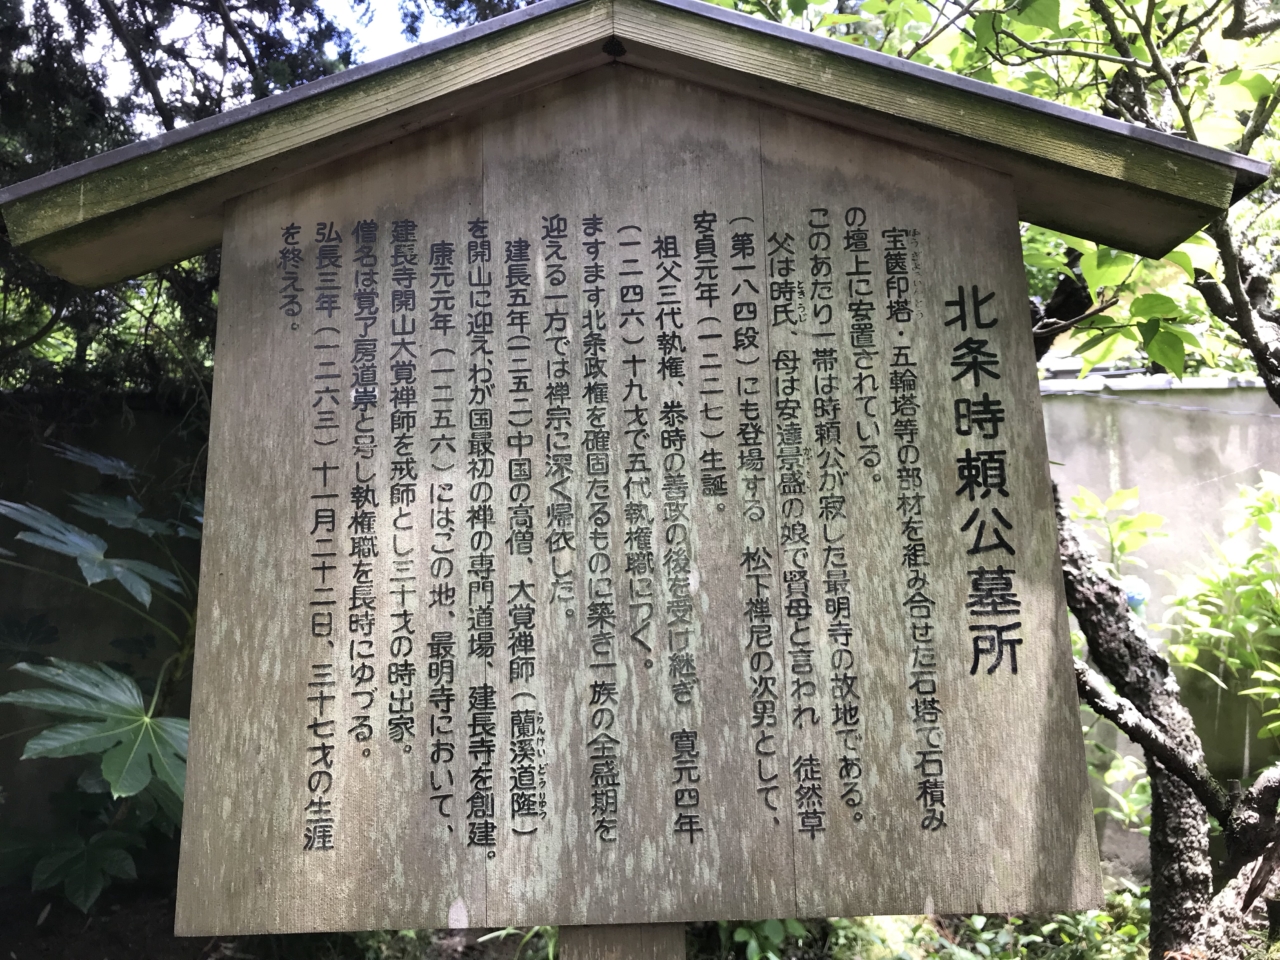 北条時頼公墓所
宝篋印塔・五輪塔等の部材を組み合せた石塔で石積み
の壇上に安置されている。
このあたり一帯は時頼公が寂した最明寺の故地である。
父は時氏、母は安達景盛の娘で賢母と言われ 徒然草
(第一八四段)にも登場する 松下禅尼の次男として、
安貞元年(一二二七)生誕。
祖父三代執権、泰時の善政の後を受け継ぎ 寛元四年
(一二四六)十九才で五代執権職につく。
ますます北条政権を確固たるものに築き一族の全盛期を
迎える一方では禅宗に深く帰依した。
建長五年(一二五三)中国の高僧、大覚禅師(蘭溪道隆)
を開山に迎え、わが国最初の禅の専門道場、建長寺を創建。
康元元年(一二五六)にはこの地、最明寺において、
建長寺開山大覚禅師を戒師とし三十才の時出家。
僧名は覚了房道崇と号し執権職を長時にゆづる。
弘長三年(一二六三)十一月二十二日、三十七才の生涯
を終える。